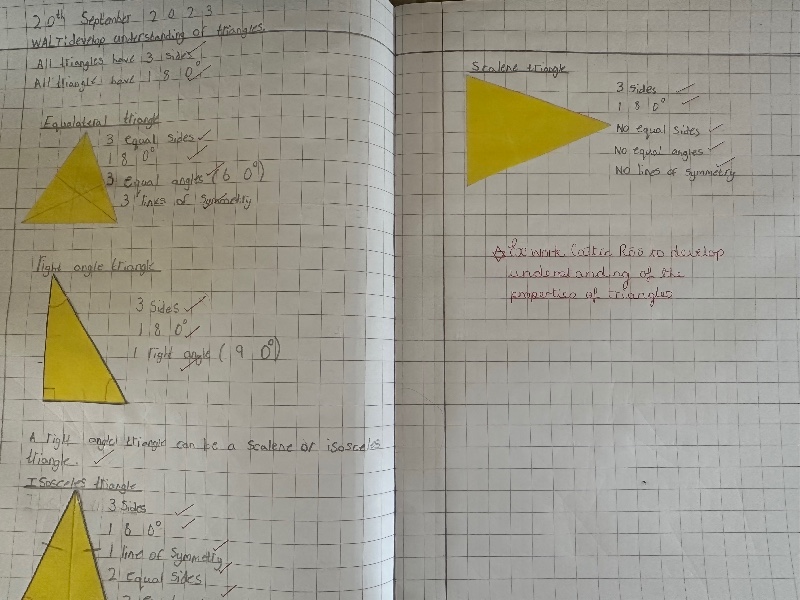 20th September 2023
WALT: develop understanding of triangles.
All triangles have 3 sides
All triangle have 180°
Equalateral triangle
3 equal sides
180°
3 equal angles (60°)
3 lines of symmetry
Right angle triangle
3 sides
180°
1 right angle (90°)
A right angle triangle can be a scalene or isosceles
triangle.
Isosceles triangle
3 sides
180°
1 line of symmetry
2 equal sides
Scalene triangle
3 sides
180°
No equal sides
No equal angles
No lines of symmetry
work to develop
understanding of the
properties of triangles